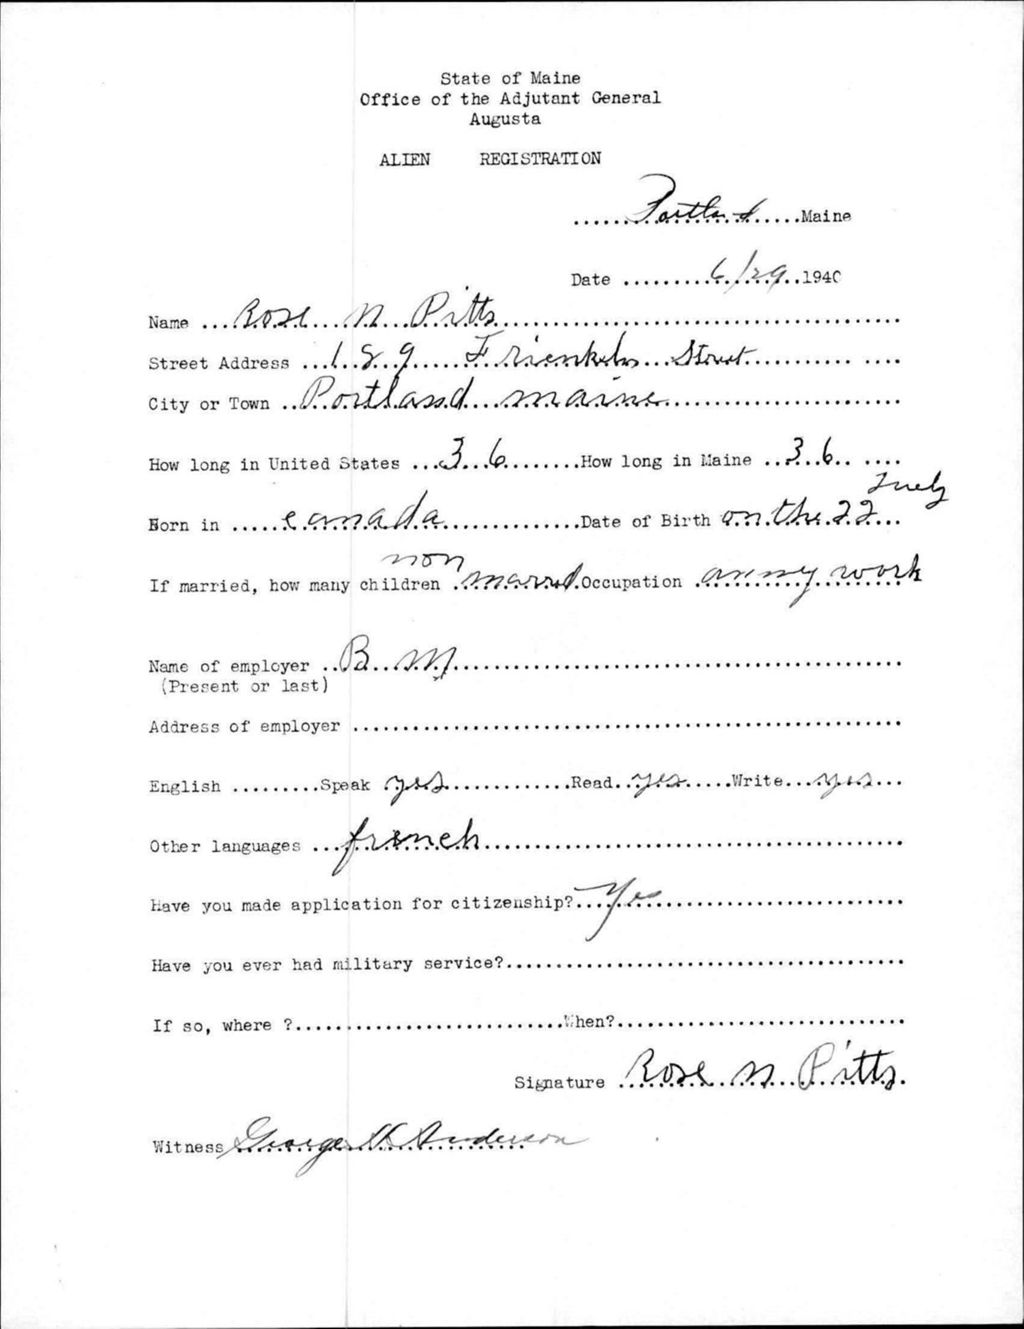 State of Maine
Office of the Adjutant General
Augusta
ALIEN REGISTRATION
Portland Maine
Date 6/29 1940
Name Rose N Pitts
Street Address 189 Street
City or Town Portland maine
How long in United States 36 How long in Maine 36
Born in canada Date of Birth on the 22 Juely
If married, how many children non married Occupation anny work
Name of employer B M
(Present or last)
Address of employer
English Speak yes Read yes Write yes
Other languages french
Have you made application for citizenship? Yes
Have you ever had military service?
If so, where ? When?
Signature Rose N Pitts
Witness George H Anderson